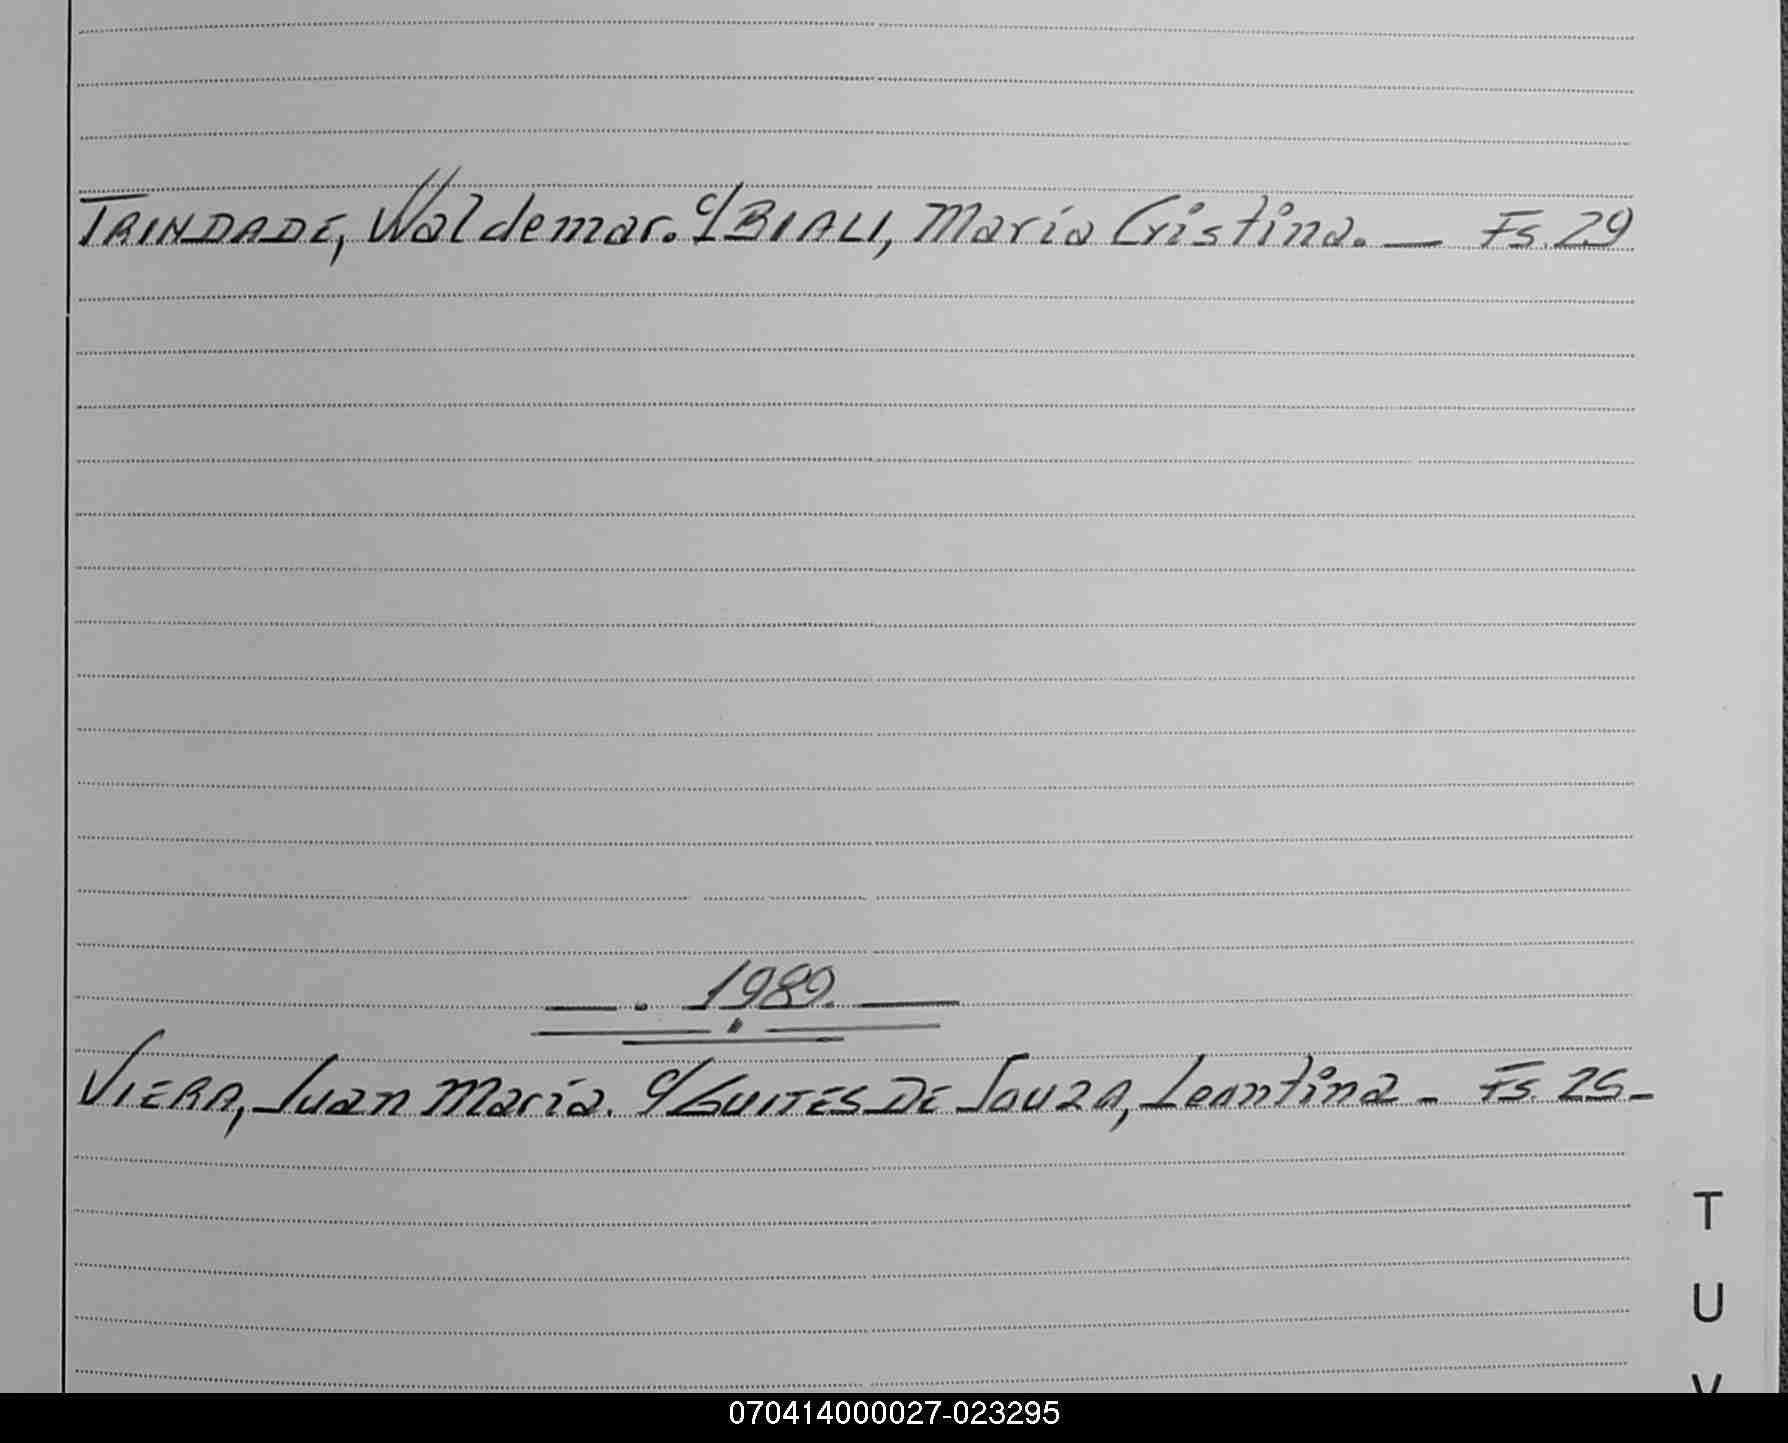 TRINDADE, Waldemar. c/BIALI, María Cristina. — Fs. 29
—. 1989. —
VIERA, Juan María. c/GUITES DE SOUZA, Leontina - Fs. 25-
T
U
V
070414000027-023295